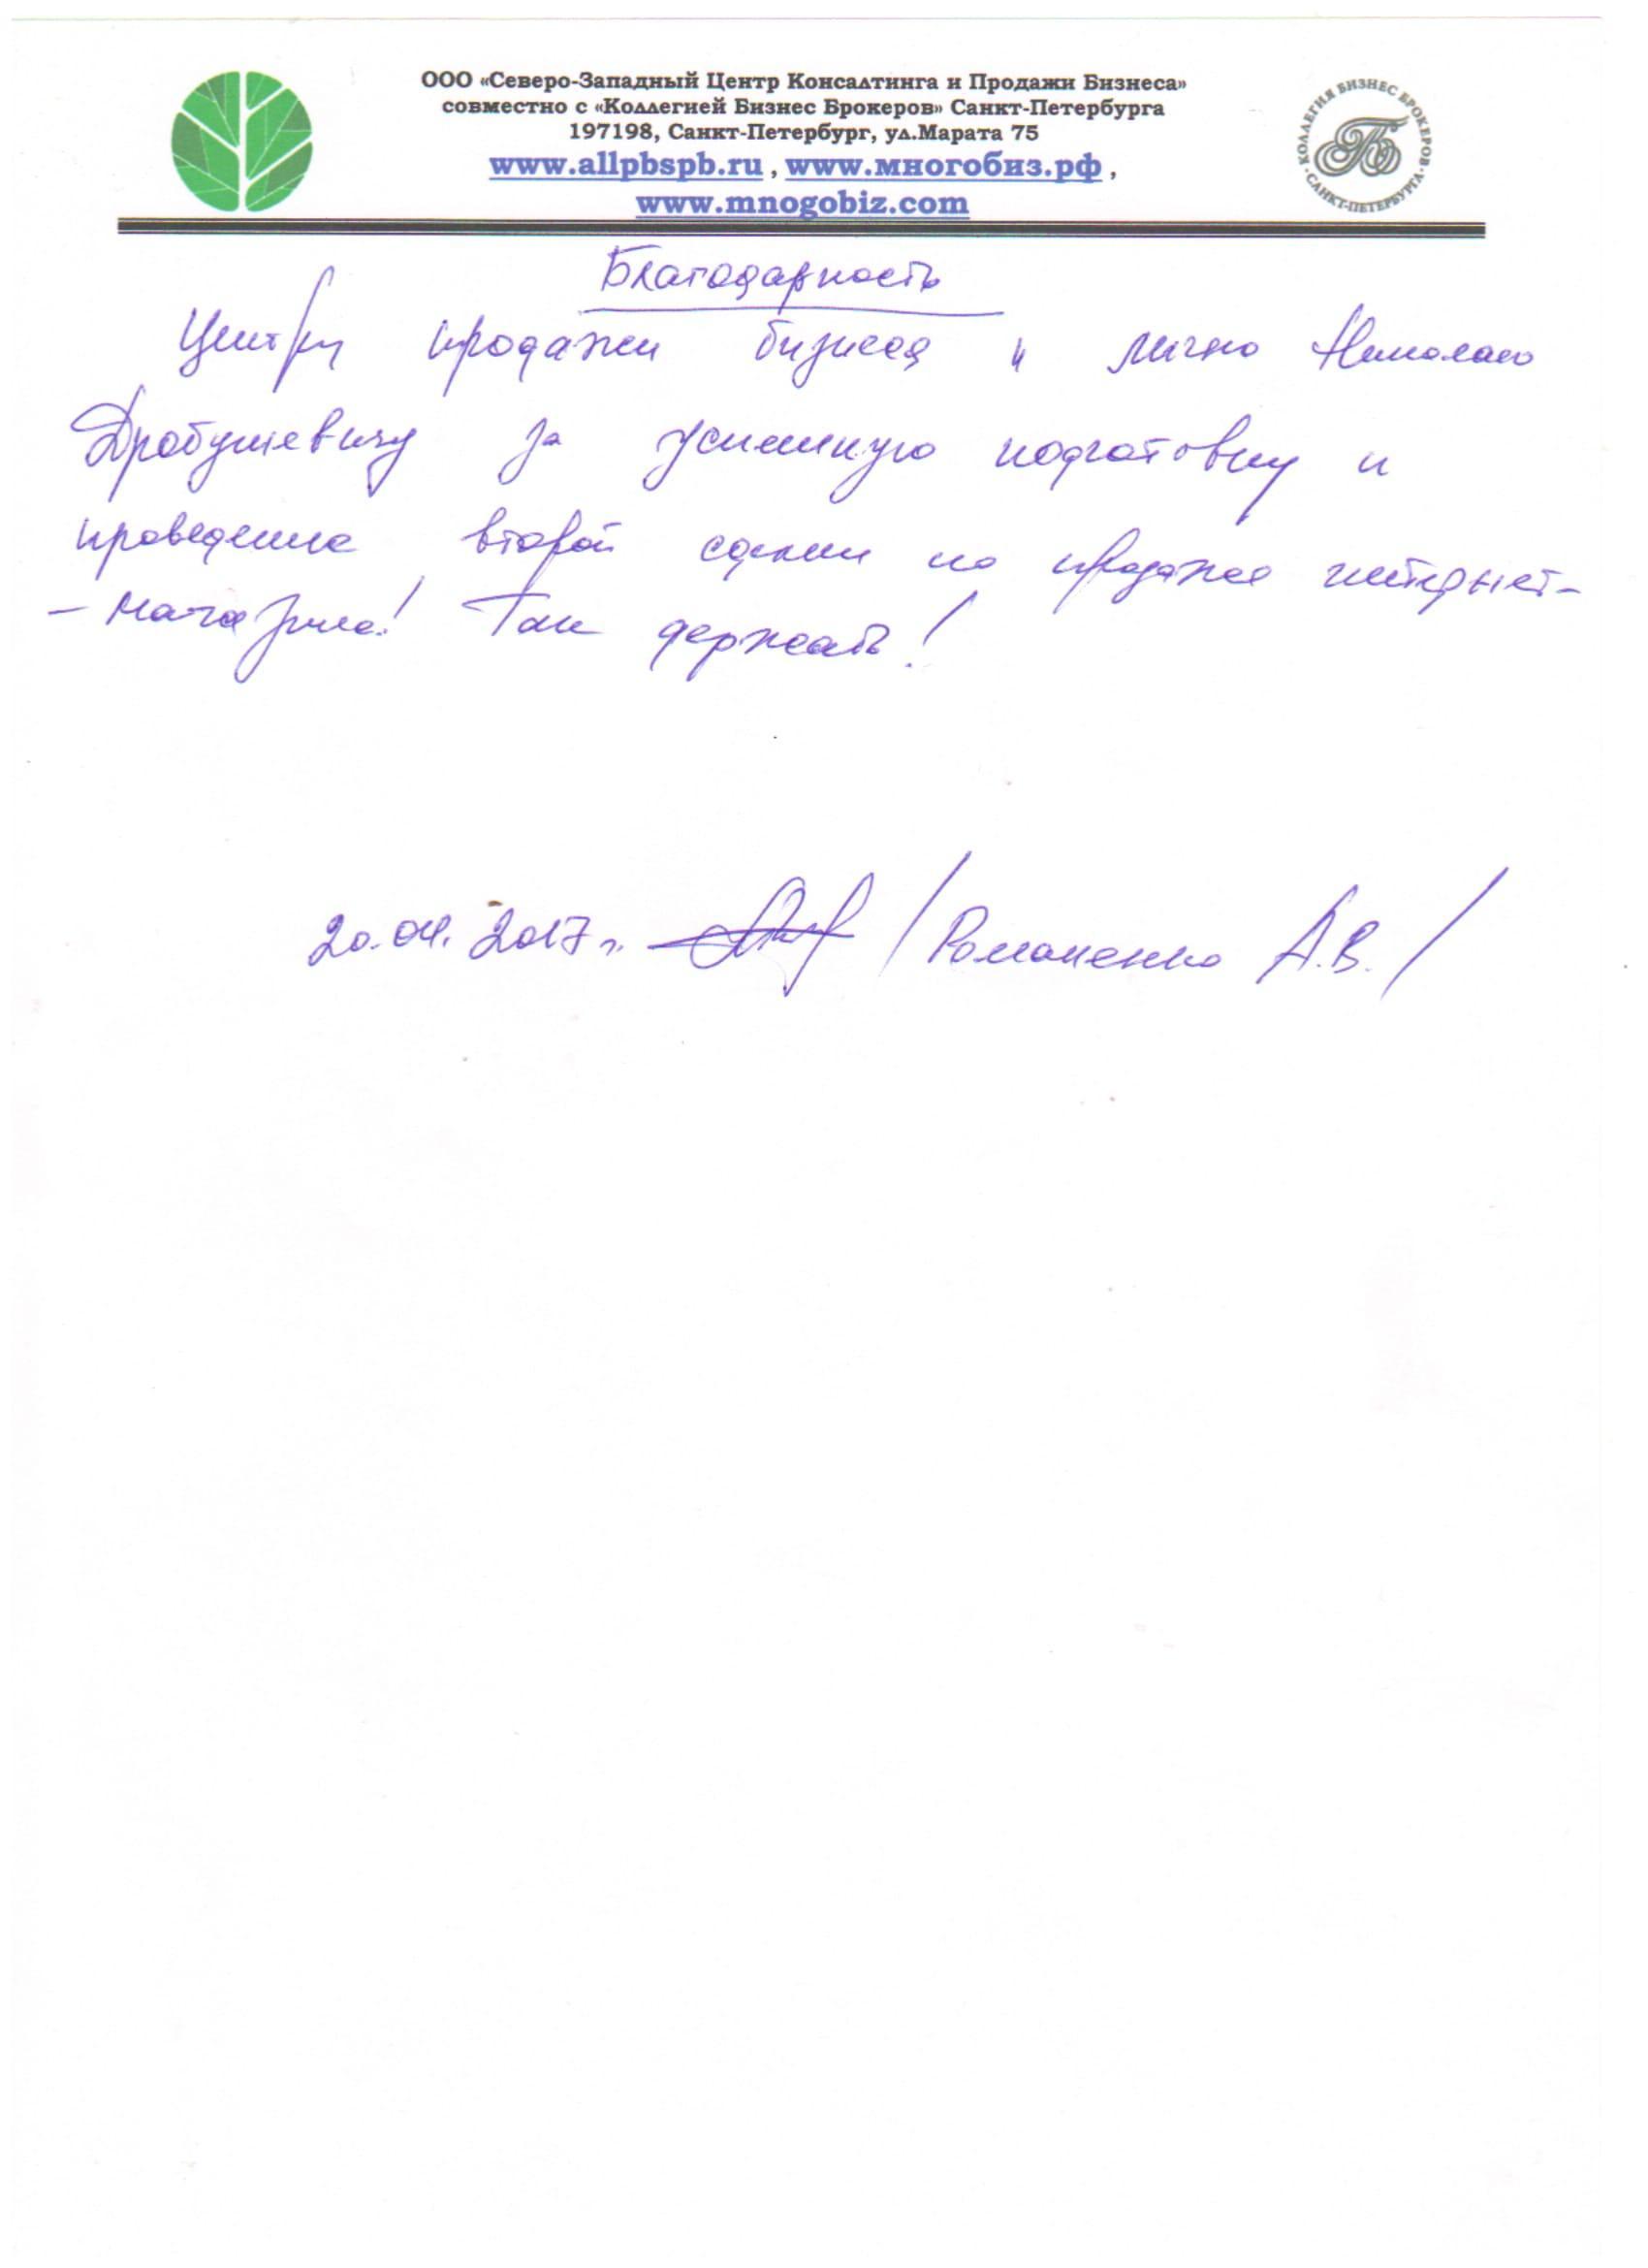 ООО «Северо-Западный Центр Консалтинга и Продажи Бизнеса»
совместно с «Коллегией Бизнес Брокеров» Санкт-Петербурга
197198, Санкт-Петербург, ул.Марата 75
www.allpbspb.ru , www.многобиз.рф ,
www.mnogobiz.com
КОЛЛЕГИЯ БИЗНЕС БРОКЕРОВ · САНКТ-ПЕТЕРБУРГА ·
Благодарность
Центру продажи бизнеса и лично Николаю
Дробушевичу за успешную подготовку и
проведение второй сделки по продаже интернет-
- магазина! Так держать!
20.04.2017 г. /Романенко А.В./